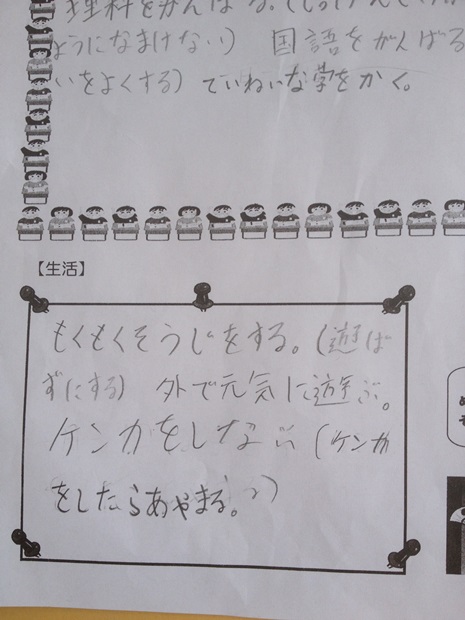 理科をがんばる。(じっけんで
ようになまけない) 国語をがんばる
いをよくする) ていねいな字をかく。
【生活】
もくもくそうじをする。(遊ば
ずにする) 外で元気に遊ぶ。
ケンカをしない(ケンカ
をしたらあやまる。)